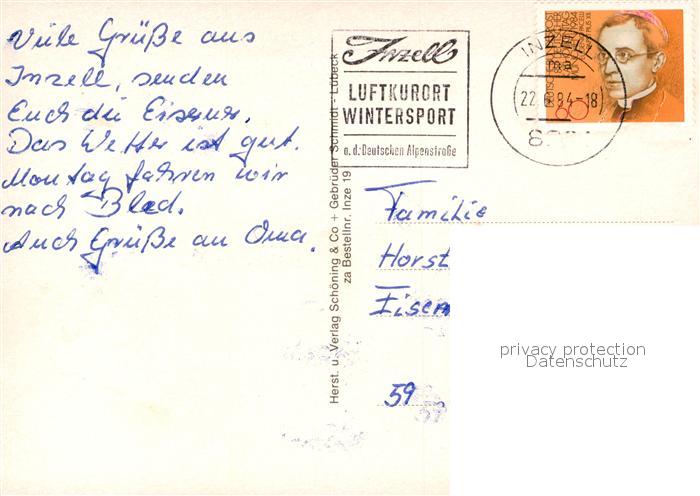 Viele Grüße aus
Inzell, senden
Euch die Eisener.
Das Wetter ist gut.
Montag fahren wir
nach Bled.
Auch Grüße an Oma.
Herst. u. Verlag Schöning & Co + Gebrüder Schmidt - Lübeck
za Bestellnr. Inze 19
Inzell
LUFTKURORT
WINTERSPORT
a. d. Deutschen Alpenstraße
INZELL
ma
-18
60
Familie
Horst
59
privacy protection
Datenschutz